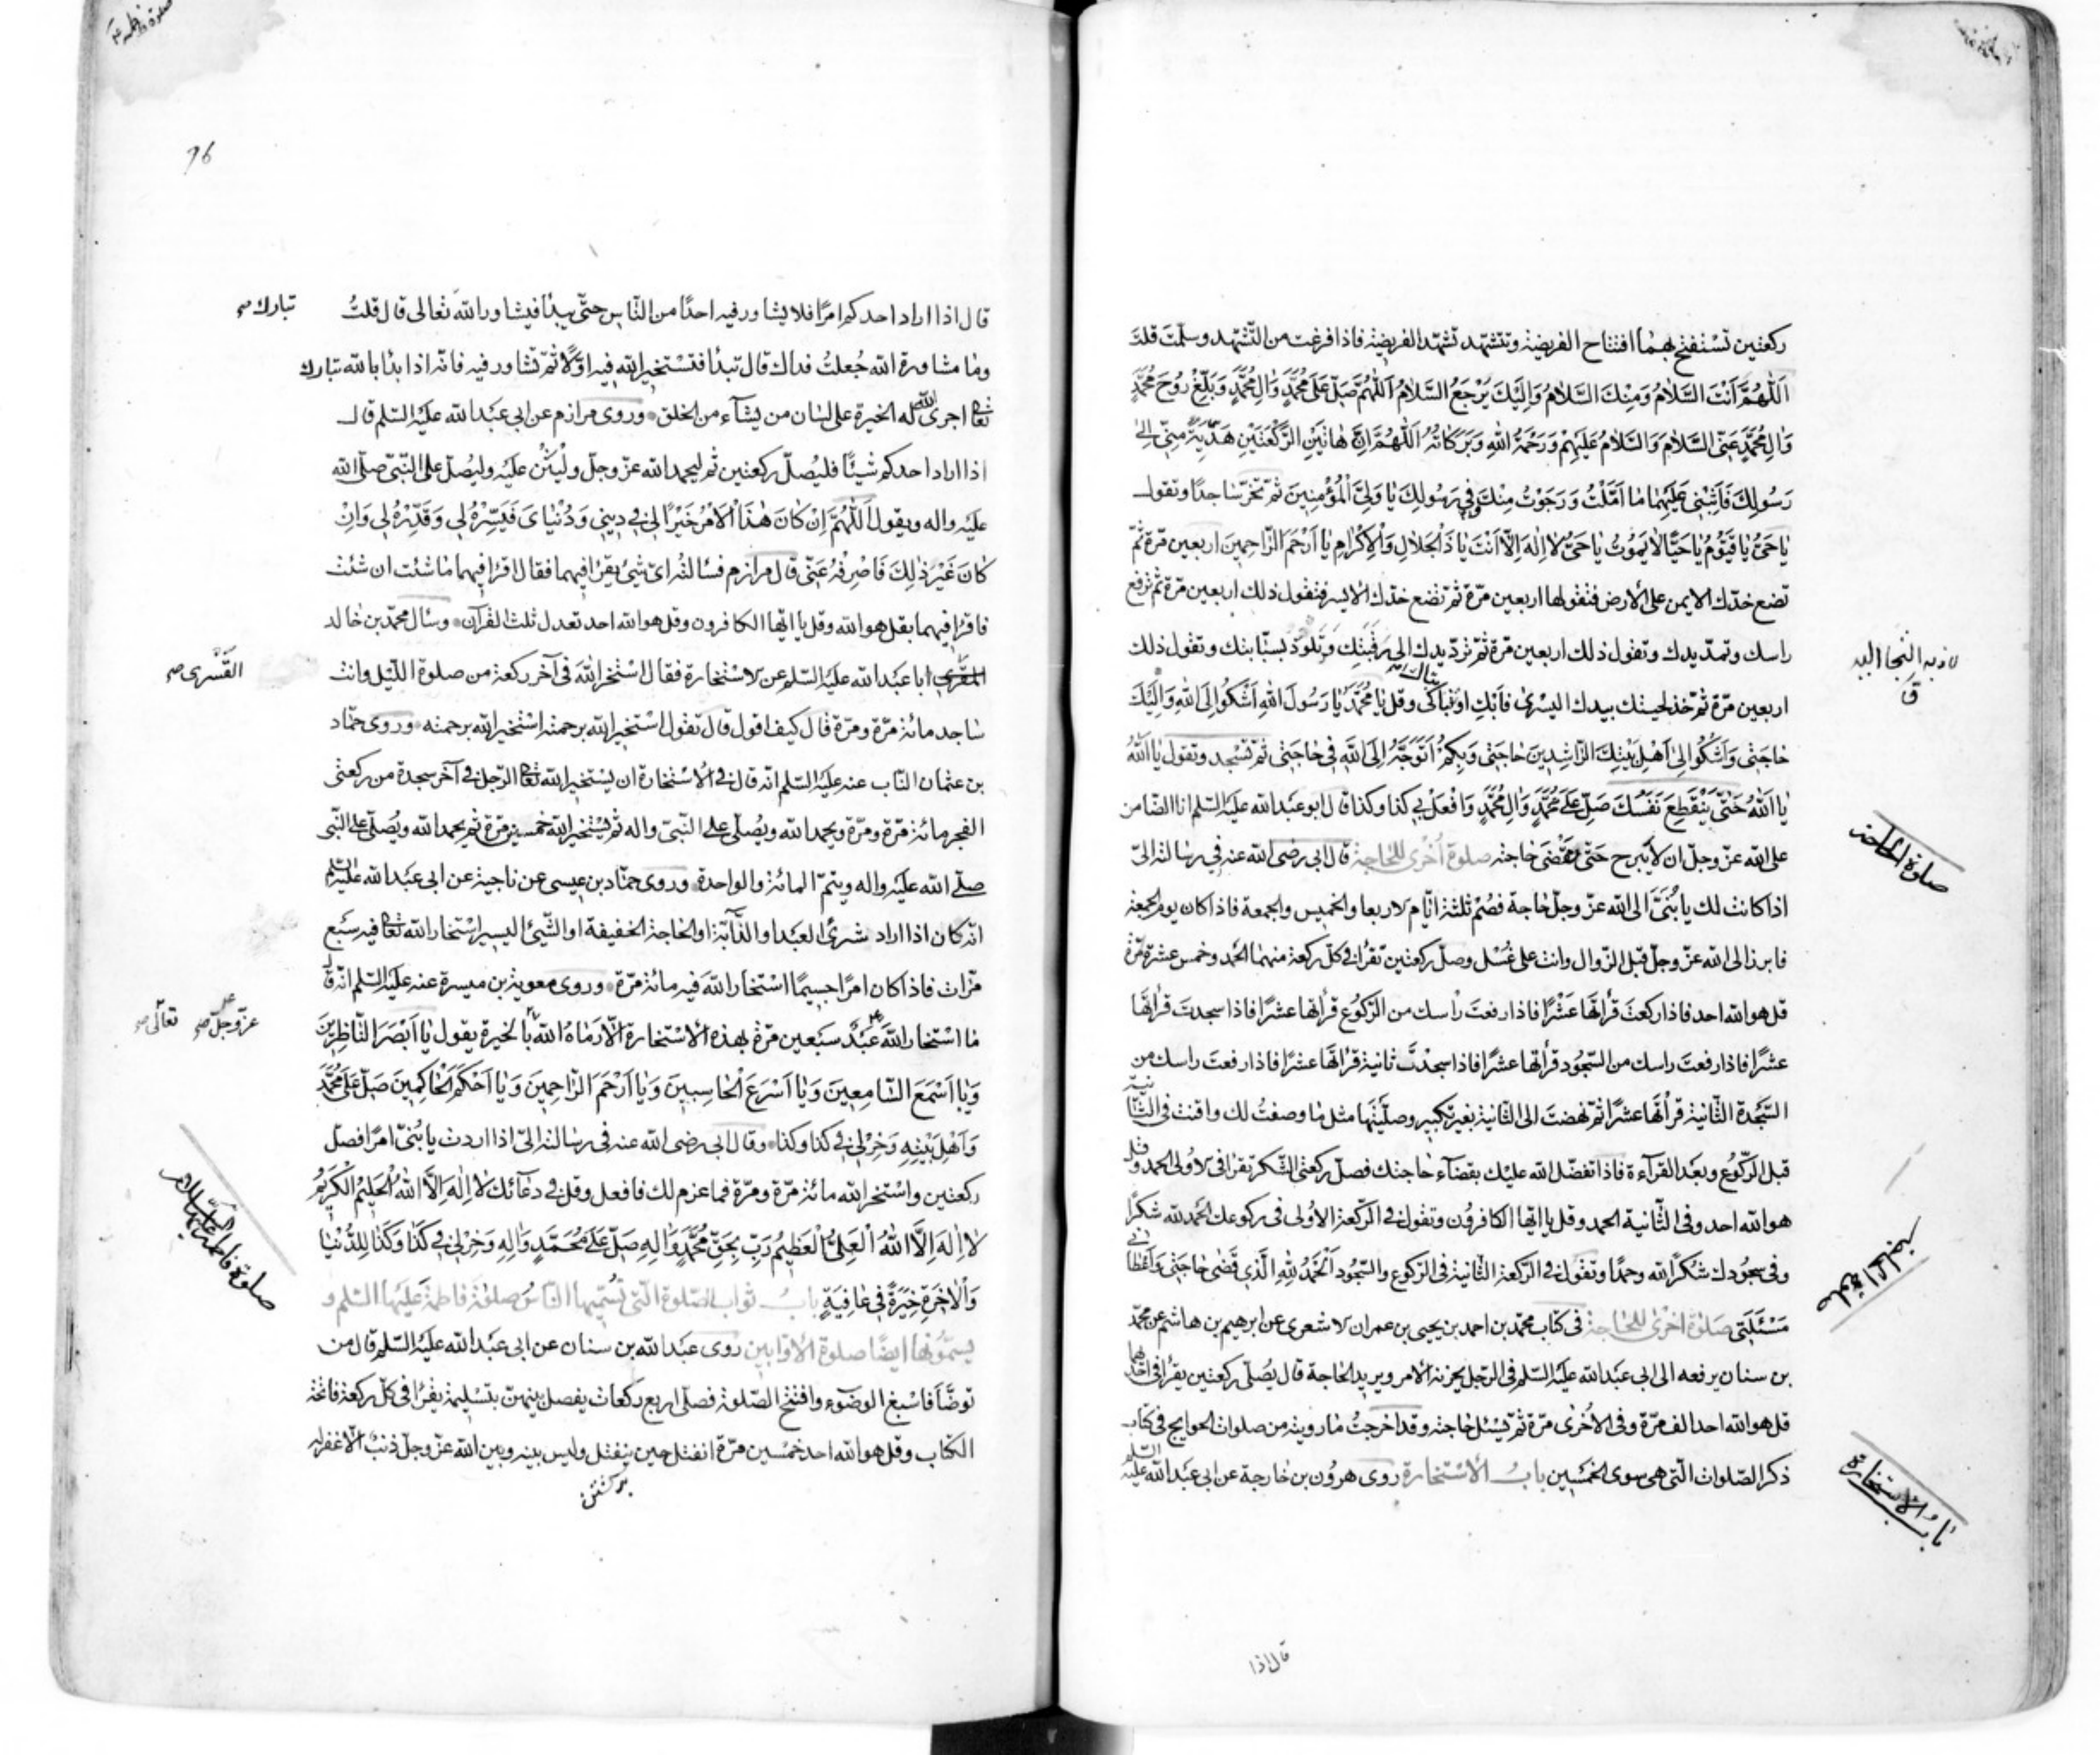 ركعتين تستفتح بهما افتتاح الفريضة وتتشهّد تشهّد الفريضة فاذا فرغت من التّشهّد وسلّمتَ قلتَ
اَللّٰهُمَّ اَنْتَ السَّلامُ وَمِنْكَ السَّلامُ وَاِلَيْكَ يَرْجِعُ السَّلامُ اَللّٰهُمَّ صَلِّ عَلَى مُحَمَّدٍ وَالِ مُحَمَّدٍ وَبَلِّغْ رُوحَ مُحَمَّدٍ
وَالِ مُحَمَّدٍ عَنِّي السَّلامَ وَالسَّلامُ عَلَيْهِمْ وَرَحْمَةُ اللهِ وَبَرَكاتُهُ اَللّٰهُمَّ اِنَّ هاتَيْنِ الرَّكْعَتَيْنِ هَدِيَّةٌ مِنّي اِلىٰ
رَسُولِكَ فَاَثِبْني عَلَيْهِما ما اَمَّلْتُ وَرَجَوْتُ مِنْكَ وَفي رَسُولِكَ يا وَلِيَّ الْمُؤْمِنِينَ ثمّ تخرّ ساجدًا وتقول
يا حَيُّ يا قَيُّومُ يا حَيًّا لا يَمُوتُ يا حَيُّ لا اِلٰهَ اِلّا اَنْتَ يا ذَا الْجَلالِ وَالْاِكْرامِ يا اَرْحَمَ الرّاحِمِينَ اربعين مرّة ثمّ
تضع خدّك الايمن على الأرض فتقولها اربعين مرّة ثمّ تضع خدّك الايسر فتقول ذلك اربعين مرّة ثم ترفع
راسك وتمدّ يدك وتقول ذلك اربعين مرّة ثمّ تردّ يدك الى رقبتك وتلوذ بسبّابتك وتقول ذلك
اربعين مرّة ثمّ خذ لحيتك بيدك اليسرى فابك او تباكى وقل يا مُحَمَّدُ يا رَسُولَ اللهِ اَشْكُو اِلَى اللهِ وَاِلَيْكَ
حاجَتي وَاَشْكُو اِلىٰ اَهْلِ بَيْتِكَ الرّاشِدِينَ حاجَتي وَبِكُمْ اَتَوَجَّهُ اِلَى اللهِ في حاجَتي ثمّ تسجد وتقول يا اَللهُ
يا اَللهُ حَتّى يَنْقَطِعَ نَفَسُكَ صَلِّ عَلىٰ مُحَمَّدٍ وَالِ مُحَمَّدٍ وَافْعَلْ بي كذا وكذا قال ابو عبد الله عليه السّلم انا الضّامن
على الله عزّ وجلّ ان لا يبرح حتّى تقضى حاجته صلوة اُخرى للحاجة قال ابي رضى الله عنه في رسالته الىّ
اذا كانت لك يا بُنَيَّ الى الله عزّ وجلّ حاجة فصُم ثلثة ايّام الاربعا والخميس والجمعة فاذا كان يوم الجمعة
فابرز الى الله عزّ وجلّ قبل الزّوال وانت على غسل وصلّ ركعتين تقرأ في كلّ ركعة منهما الحمد وخمس عشرة مرّة
قل هو الله احد فاذا ركعتَ قرأتها عَشْرًا فاذا رفعتَ رأسك من الرّكوع قرأتها عشرًا فاذا سجدتَ قرأتها
عشرًا فاذا رفعتَ راسك من السّجود قرأتها عشرًا فاذا سجدتَ ثانية قرأتها عشرًا فاذا رفعتَ راسك من
السّجدة الثّانية قرأتها عشرًا ثمّ نهضتَ الى الثّانية بغير تكبير وصلّيتها مثل ما وصفتُ لك واقنت في الثّانية
قبل الرّكوع وبعد القرآءة فاذا تفضّل الله عليك بقضآء حاجتك فصلّ ركعتي الشّكر تقرأ في الاولى الحمد وقل
هو الله احد وفي الثّانية الحمد وقل يا ايّها الكافرون وتقول في الرّكعة الاولى في ركوعك الحمد لله شكرًا
وفي سجودك شكرًا لله وحمدًا وتقول في الرّكعة الثّانية في الرّكوع والسّجود اَلْحَمْدُ لِلّٰهِ الَّذي قَضىٰ حاجَتي وَاَعْطاني
مَسْئَلَتي صلوة اخرى للحاجة في كتاب محمّد بن احمد بن يحيى بن عمران الاشعري عن ابرهيم بن هاشم عن محمّد
بن سنان يرفعه الى ابي عبد الله عليه السّلم في الرّجل يحزنه الامر ويريد الحاجة قال يُصلّي ركعتين يقرأ في احداهما
قل هو الله احد الف مرّة وفي الاُخرى مرّة ثمّ يسئل حاجته وقد اخرجتُ ما رويته من صلوات الحوايج في كتاب
ذكر الصّلوات الّتي هي سوى الخمسين بابُ الاستخارة روى هرون بن خارجة عن ابي عبد الله عليه السّلم
صلوة الحاجة
صلوة الحاجة
باب الاستخارة
قال اذا
96
قال اذا اراد احدكم امرًا فلا يشاور فيه احدًا من النّاس حتّى يبدأ فيشاور الله تعالى قال قلتُ
تبارك
وما مشاورة الله جُعلتُ فداك قال تبدأ فتستخير الله فيه اوّلًا ثمّ تشاور فيه فانّه اذا بدأ بالله تبارك
تعالى اجرى الله له الخيرة على لسان من يشآء من الخلق وروى مرازم عن ابي عبد الله عليه السّلم قال
اذا اراد احدكم شيئًا فليُصلّ ركعتين ثم ليحمد الله عزّ وجلّ وليُثن عليه وليُصلّ على النّبيّ صلّى الله
عليه واله ويقول اَللّٰهُمَّ اِنْ كانَ هٰذَا الْاَمْرُ خَيْرًا لي في ديني وَدُنْيايَ فَيَسِّرْهُ لي وَقَدِّرْهُ لي وَاِنْ
كانَ غَيْرَ ذٰلِكَ فَاصْرِفْهُ عَنّي قال مرازم فسألته اىّ شئ يقرأ فيهما فقال اقرأ فيهما ما شئت ان شئت
فاقرأ فيهما بقل هو الله وقل يا ايّها الكافرون وقل هو الله احد تعدل ثلث القرآن وسأل محمّد بن خالد
القَسْرى
ابا عبد الله عليه السّلم عن الاستخارة فقال استخر الله في آخر ركعة من صلوة اللّيل وانت
ساجد مائة مرّة ومرّة قال كيف اقول قال تقول استخير الله برحمته استخير الله برحمته وروى حمّاد
بن عثمان النّاب عنه عليه السّلم انّه قال في الاستخارة ان يستخير الله تعالى الرّجل في آخر سجدة من ركعتي
الفجر مائة مرّة ومرّة ويحمد الله ويُصلّي على النّبيّ واله ثمّ يستخير الله خمسين مرّة ثم يحمد الله ويُصلّي على النّبي
صلّى الله عليه واله ويتمّ المائة والواحدة وروى حمّاد بن عيسى عن ناجية عن ابي عبد الله عليه السّلم
انّه كان اذا اراد شرىٰ العبد او الدّابّة او الحاجة الخفيفة او الشّئ اليسير استخار الله تعالى فيه سبع
مرّات فاذا كان امرًا جسيمًا استخار الله فيه مائة مرّة وروى معوية بن ميسرة عنه عليه السّلم انّه قال
عزّ وجلّ تعالى
ما استخار الله عبدٌ سبعين مرّة بهذه الاستخارة الّا رماهُ الله بالخيرة يقول يا اَبْصَرَ النّاظِرِينَ
وَيا اَسْمَعَ السّامِعِينَ وَيا اَسْرَعَ الْحاسِبِينَ وَيا اَرْحَمَ الرّاحِمِينَ وَيا اَحْكَمَ الْحاكِمِينَ صَلِّ عَلىٰ مُحَمَّدٍ
وَاَهْلِ بَيْتِهِ وَخِرْ لي في كذا وكذا وقال ابي رضى الله عنه في رسالته الىّ اذا اردت يا بُنيّ امرًا فصلّ
ركعتين واستخر الله مائة مرّة ومرّة فما عزم لك فافعل وقل في دعآئك لا اِلٰهَ اِلَّا اللهُ الْحَلِيمُ الْكَرِيمُ
لا اِلٰهَ اِلَّا اللهُ الْعَلِيُّ الْعَظِيمُ رَبِّ بِحَقِّ مُحَمَّدٍ وَالِهِ صَلِّ عَلىٰ مُحَمَّدٍ وَالِهِ وَخِرْ لي في كَذا وَكَذا لِلدُّنْيا
وَالْاٰخِرَةِ خِيَرَةً في عافِيَةٍ بابُ ثواب الصّلوة الّتي تُسمّيها النّاسُ صلوة فاطمة عليها السّلم و
يسمّونها ايضًا صلوة الاوّابين روى عبد الله بن سنان عن ابي عبد الله عليه السّلم قال من
توضّأ فاسبغ الوضوء وافتتح الصّلوة فصلّى اربع ركعات يفصل بينهنّ بتسليمة يقرأ في كلّ ركعة فاتحة
الكتاب وقل هو الله احد خمسين مرّة انفتل حين ينفتل وليس بينه وبين الله عزّ وجلّ ذنبٌ الّا غفر له
صلوة فاطمة عليها السلام